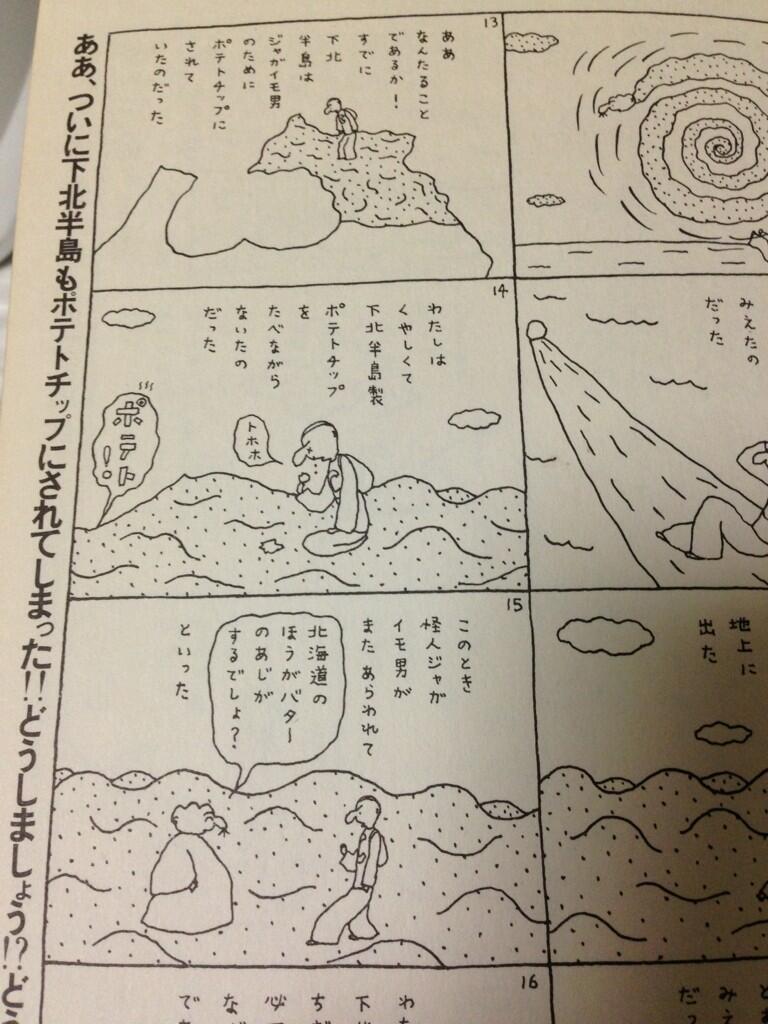 みえたの
だった
地上に
出た
13
ああ
なんたること
であるか！
すでに
下北
半島は
ジャガイモ男
のために
ポテトチップに
されて
いたのだった
14
わたしは
くやしくて
下北半島製
ポテトチップ
を
たべながら
ないたの
だった
トホホ
ポテト！
15
このとき
怪人ジャガ
イモ男が
また あらわれて
北海道の
ほうがバター
のあじが
するでしょ？
といった
16
ああ、ついに下北半島もポテトチップにされてしまった!!どうしましょう!?ど